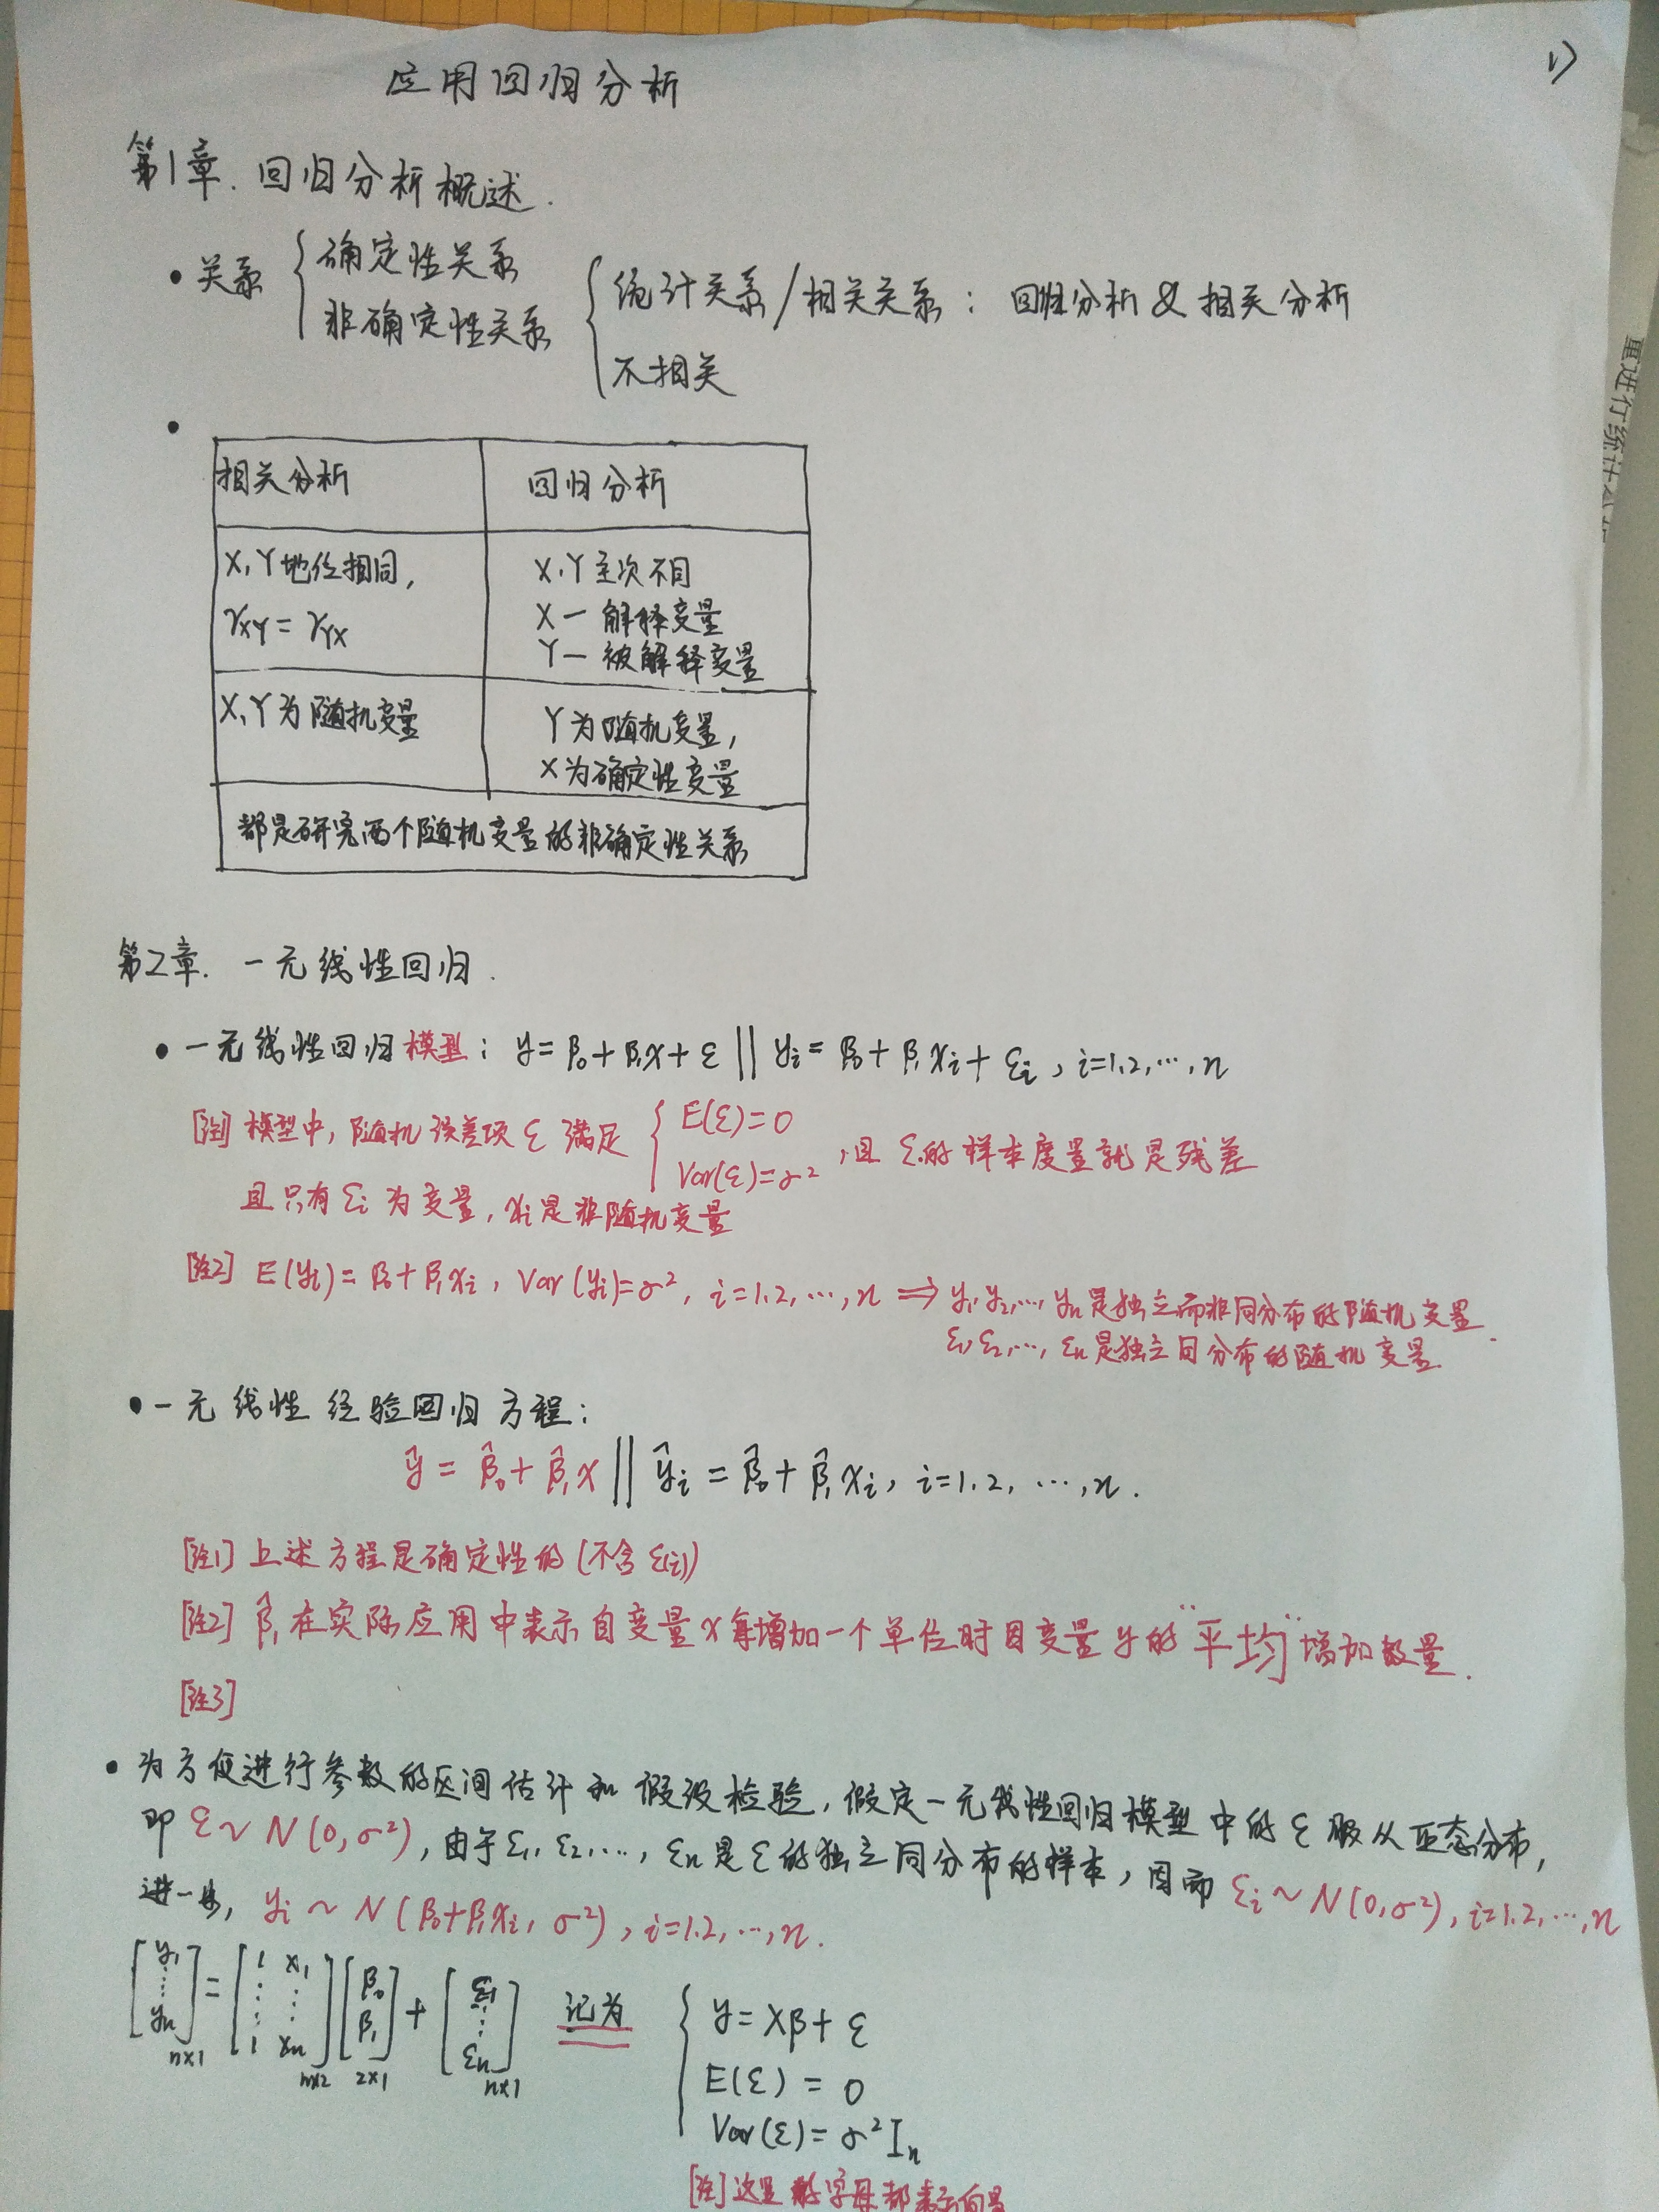 1)
应用回归分析
第1章. 回归分析概述.
• 关系 { 确定性关系
非确定性关系 { 统计关系/相关关系: 回归分析 & 相关分析
不相关
•
相关分析 回归分析
X, Y地位相同, X, Y主次不同
γXY = γYX X — 解释变量
Y — 被解释变量
X, Y为随机变量 Y为随机变量,
X为确定性变量
都是研究两个随机变量的非确定性关系
第2章. 一元线性回归.
• 一元线性回归模型: y = β₀ + β₁x + ε || yᵢ = β₀ + β₁xᵢ + εᵢ, i=1,2,…,n
[注1] 模型中, 随机误差项 ε 满足 { E(ε)=0
Var(ε)=σ² , 且 ε的样本度量就是残差
且只有 εᵢ 为变量, xᵢ是非随机变量
[注2] E(yᵢ)=β₀+β₁xᵢ, Var(yᵢ)=σ², i=1,2,…,n ⇒ y₁,y₂,…,yₙ是独立而非同分布的随机变量
ε₁,ε₂,…,εₙ是独立同分布的随机变量.
• 一元线性经验回归方程:
ŷ = β̂₀ + β̂₁x || ŷᵢ = β̂₀ + β̂₁xᵢ, i=1,2,…,n.
[注1] 上述方程是确定性的 (不含ε(i))
[注2] β̂₁在实际应用中表示自变量x每增加一个单位时因变量y的"平均"增加数量.
[注3]
• 为方便进行参数的区间估计和假设检验, 假定一元线性回归模型中的ε服从正态分布,
即 ε~N(0,σ²), 由于ε₁,ε₂,…,εₙ是ε的独立同分布的样本, 因而 εᵢ~N(0,σ²), i=1,2,…,n
进一步, yᵢ ~ N(β₀+β₁xᵢ, σ²), i=1,2,…,n.
[y₁ ⋮ yₙ]n×1 = [1 x₁ ⋮ ⋮ 1 xₙ]n×2 [β₀ β₁]2×1 + [ε₁ ⋮ εₙ]n×1 记为 { y = Xβ + ε
E(ε) = 0
Var(ε) = σ²Iₙ
[注] 这里 字母都表示向量